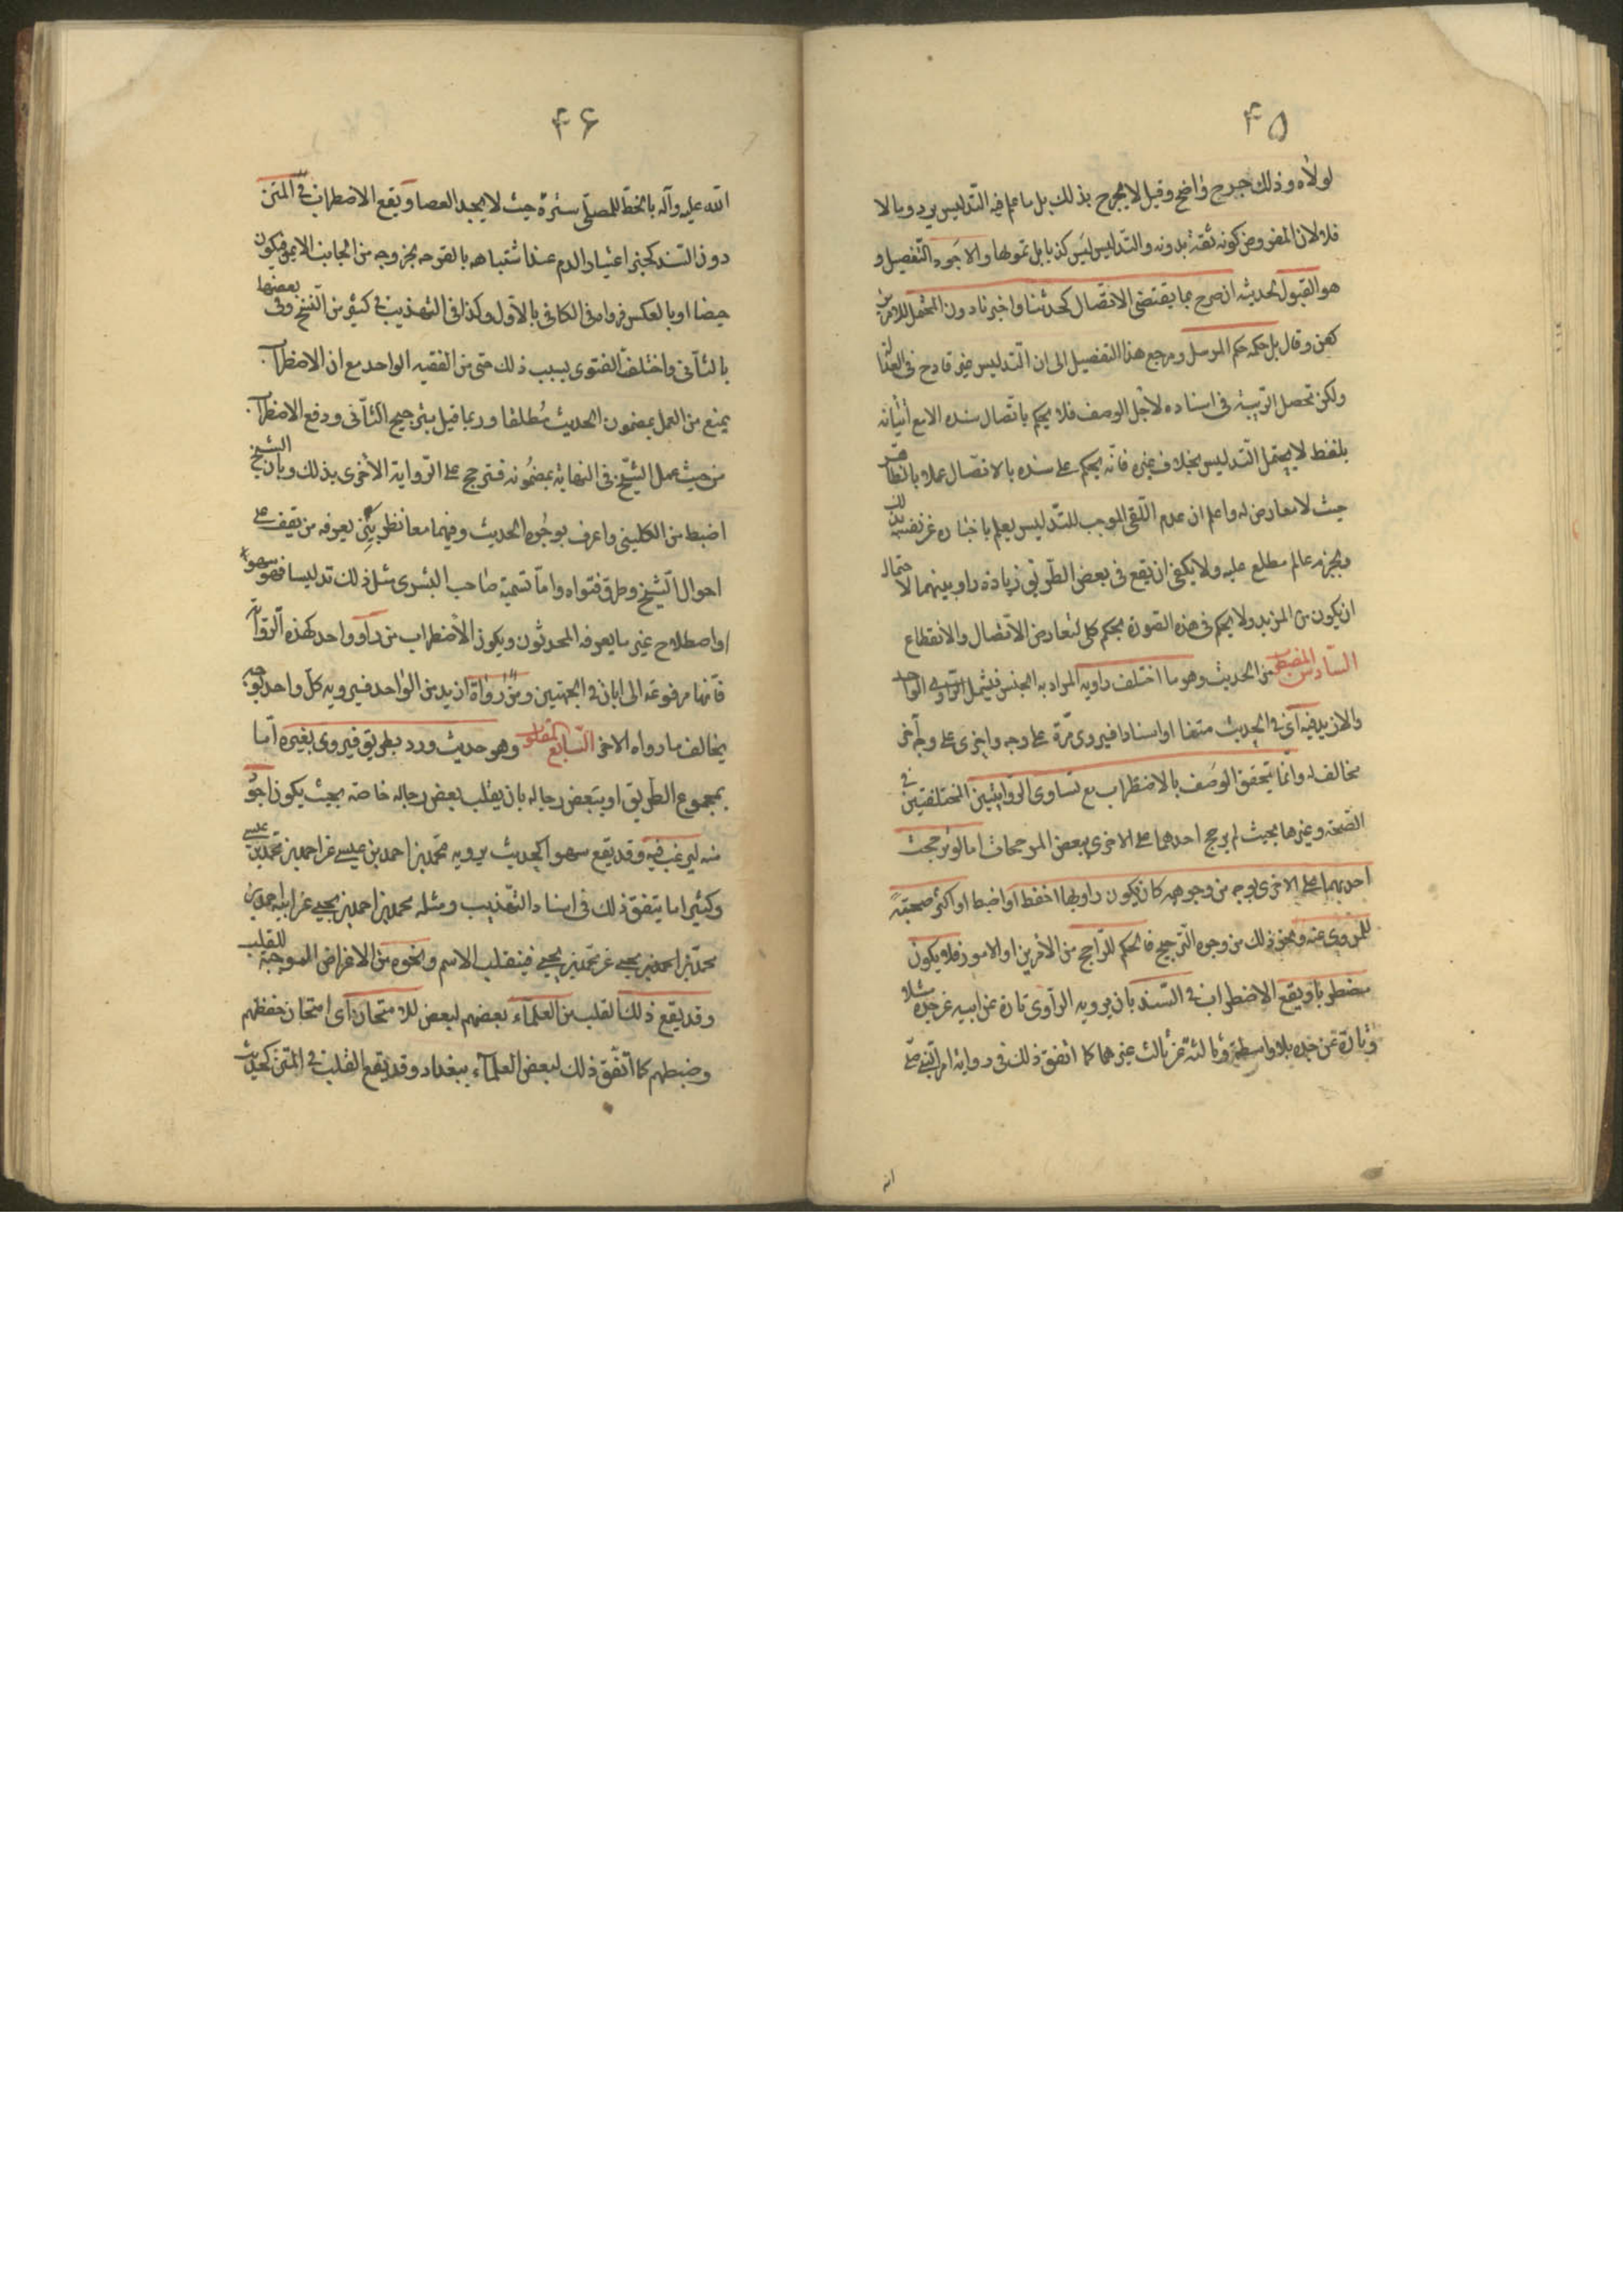 ۴۵
لولاه وذلك جرح واضح وقيل لا يجرح بذلك بل ما علم فيه التدليس يرد وما لا
فلا لان المفروض كونه ثقة بدونه والتدليس ليس كذبا بل تمويها والاجود التفصيل و
هو القبول لحديثه ان صرح بما يقتضى الاتصال كحدثنا واخبرنا دون المحتمل للامرين
كعن وقال بل حكمه حكم المرسل ومرجع هذا التفصيل الى ان التدليس غير قادح فى العدالة
ولكن تحصل الريبة فى اسناده لاجل الوصف فلا يحكم باتصال سنده الا مع اتيانه
بلفظ لا يحتمل التدليس بخلاف غيره فانه يحكم على سنده بالاتصال عملا بالظاهر
حيث لا معارض له واعلم ان عدم اللقى الموجب للتدليس يعلم باخباره عن نفسه بذلك
وبجزم عالم مطلع عليه ولا يكفى ان يقع فى بعض الطرق زيادة راو بينهما لاحتمال
ان يكون من المزيد ولا يحكم فى هذه الصورة بحكم كلى لتعارض الاتصال والانقطاع
السادس المضطرب من الحديث وهو ما اختلف راويه المراد به الجنس فيشمل الراوى الواحد
والازيد فيه اى فى الحديث متنا او اسنادا فيروى مرة على وجه واخرى على وجه آخر
مخالف له وانما يتحقق الوصف بالاضطراب مع تساوى الروايتين المختلفتين فى
الصحة وغيرها بحيث لم يرجح احدهما على الاخرى ببعض المرجحات اما لو ترجحت
احديهما على الاخرى بوجه من وجوهه كان يكون راويها احفظ او اضبط او اكثر صحبة
للمروى عنه ونحو ذلك من وجوه الترجيح فالحكم للراجح من الامرين او الامور فلا يكون
مضطربا ويقع الاضطراب فى السند بان يرويه الراوى تارة عن ابيه عن جده مثلا
وتارة عن جده بلا واسطة وثالثة عن ثالث غيرهما كما اتفق ذلك فى رواية امر النبى صلى
۴۶
الله عليه وآله بالخط للمصلى سترة حيث لا يجد العصا ويقع الاضطراب فى المتن
دون السند كخبر اعتبار الدم عند اشتباهه بالقرحه بخروجه من الجانب الايمن فيكون
حيضا او بالعكس فرواه فى الكافى بالاول وكذا فى التهذيب فى كثير من النسخ وفى بعضها
بالثانى واختلف الفتوى بسبب ذلك حتى من الفقيه الواحد مع ان الاضطراب
يمنع من العمل بمضمون الحديث مطلقا وربما قيل بترجيح الثانى ودفع الاضطراب
من حيث عمل الشيخ فى النهاية بمضمونه فترجح على الرواية الاخرى بذلك وبان الشيخ
اضبط من الكلينى واعرف بوجوه الحديث وفيهما معا نظر بين يعرفه من يقف على
احوال الشيخ وطرق فتواه واما تسمية صاحب البشرى مثل ذلك تدليسا فهو سهو
او اصطلاح غير ما يعرفه المحدثون ويكون الاضطراب من راو واحد كهذه الرواية
فانها مرفوعة الى ابان فى الجهتين ومن رواة ازيد من الواحد فيرويه كل واحد بوجه
يخالف ما رواه الاخر السابع المقلوب وهو حديث ورد بطريق فيروى بغيره اما
بمجموع الطريق او ببعض رجاله بان يقلب بعض رجاله خاصة بحيث يكون اجود
منه ليرغب فيه وقد يقع سهوا كحديث يرويه محمد بن احمد بن عيسى عن احمد بن محمد بن عيسى
وكثيرا ما يتفق ذلك فى اسناد التهذيب ومثله محمد بن احمد بن يحيى عن ابيه احمد بن
محمد بن احمد بن يحيى عن محمد بن يحيى فينقلب الاسم ونحوه من الاغراض الموجبة للقلب
وقد يقع ذلك القلب من العلماء بعضهم لبعض للامتحان اى امتحان حفظهم
وضبطهم كما اتفق ذلك لبعض العلماء ببغداد وقد يقع القلب فى المتن كحديث